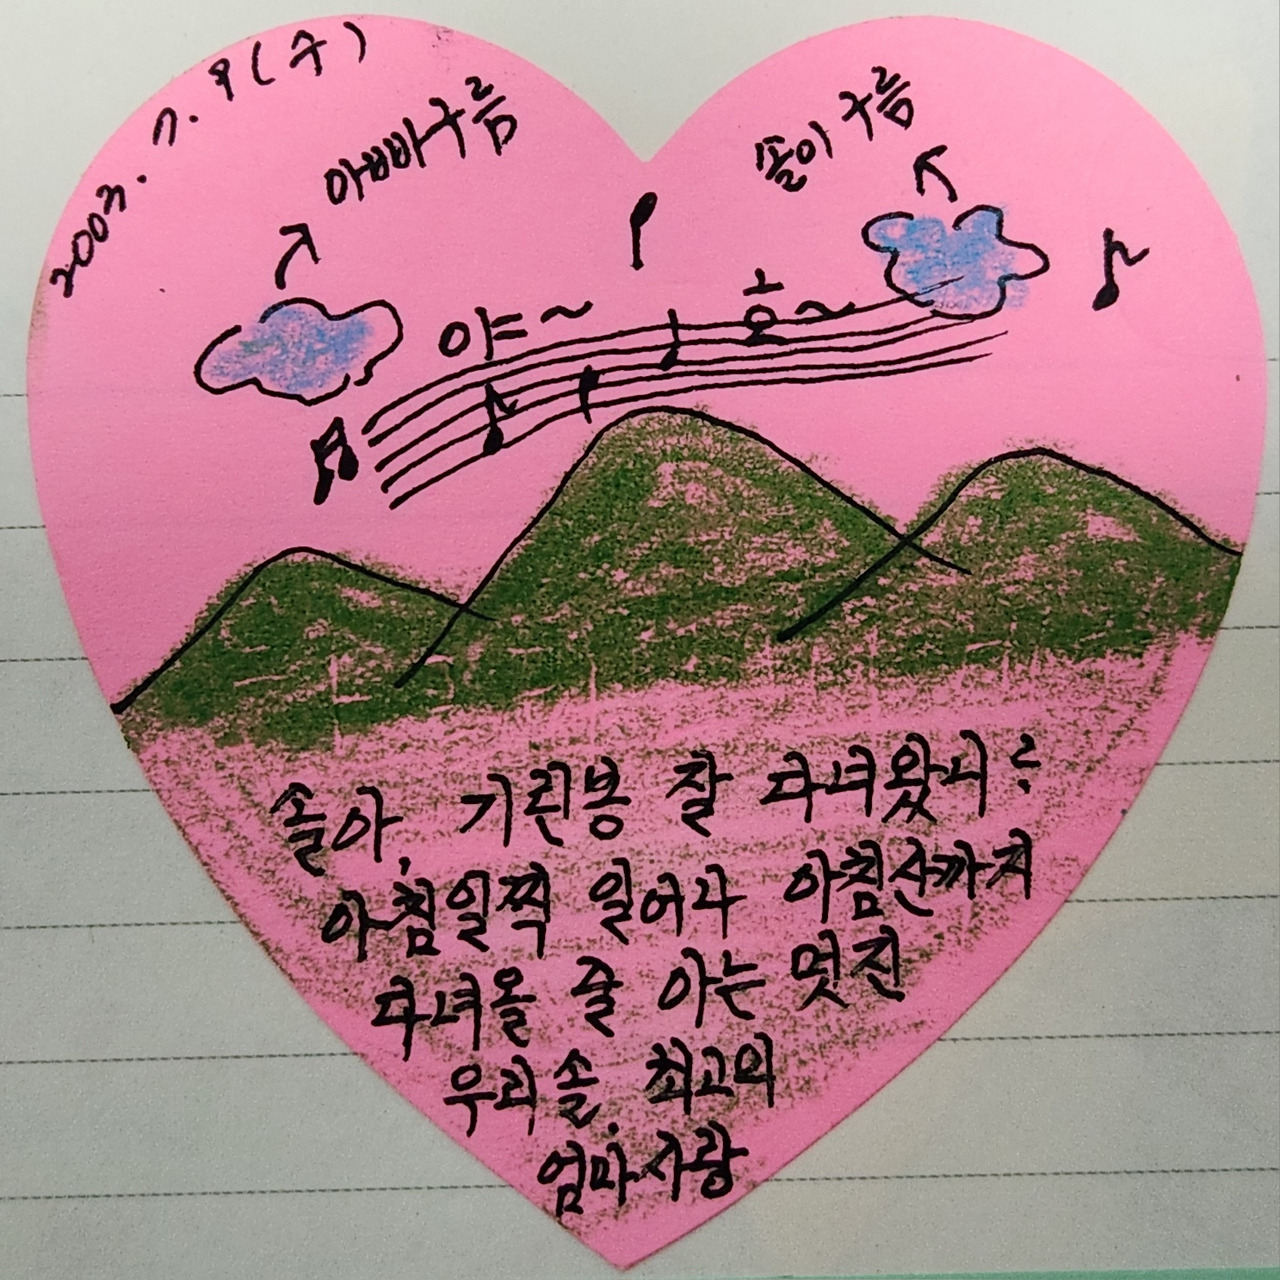 2003. 7. 9 (수)
아빠구름
솔이 구름
야~
호~
솔아, 기린봉 잘 다녀왔니?
아침일찍 일어나 아침산까지
다녀올 줄 아는 멋진
우리솔. 최고의
엄마사랑